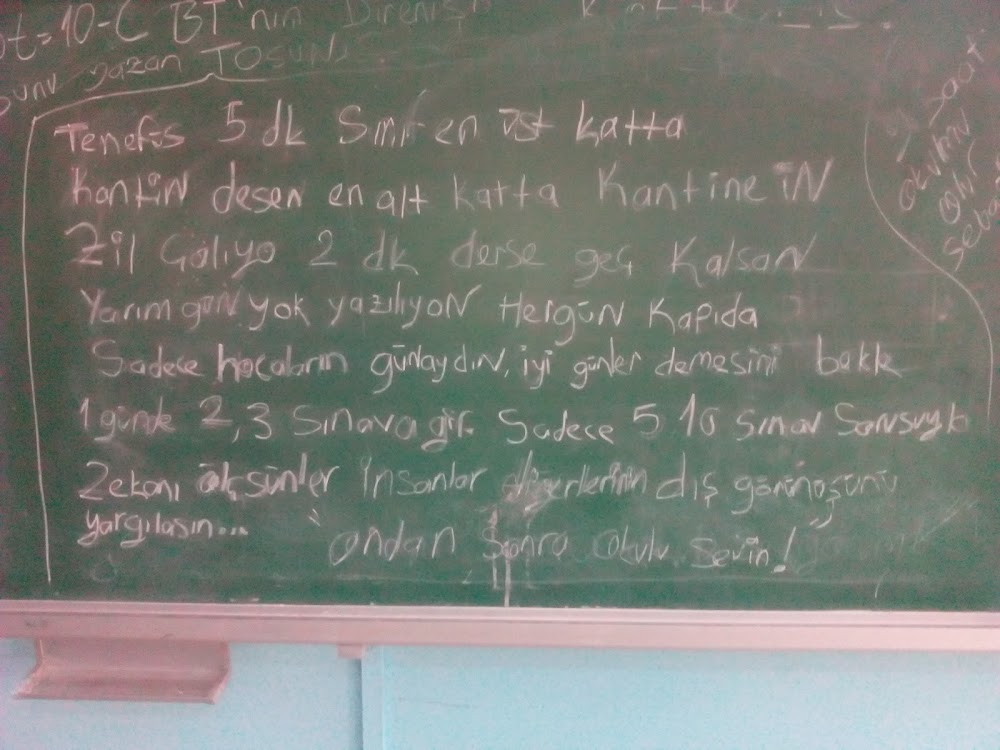 t=10-C BT'nin Direnişi
bunu yazan TOSUN
Tenefüs 5 dk Sınıf en üst katta
Kantin desen en alt katta Kantine iN
Zil Çalıyo 2 dk derse geç Kalsan
Yarım gün yok yazılıyoN Hergün Kapıda
Sadece hocaların günaydın, iyi günler demesini bekle
1 günde 2,3 Sınava gir. Sadece 5 10 sınav Sorusuyla
Zekanı ölçsünler insanlar diğerlerinin dış görünüşünü
yargılasın...
"Ondan Sonra Okulu Sevin!"
saat
okulun